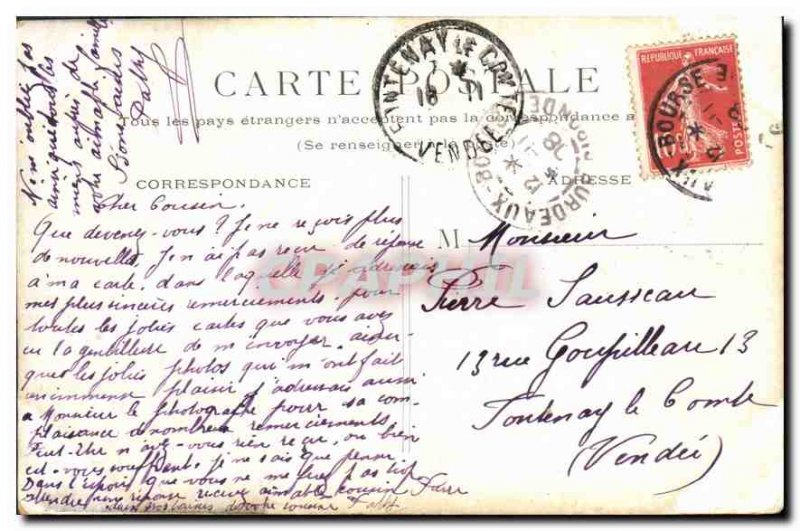 N'oubliez pas
ainsi que tous les
miens auprès de
votre aimable famille
Bons baisers
CARTE POSTALE
Tous les pays étrangers n'acceptent pas la correspondance a
(Se renseigner à la
CORRESPONDANCE
ADRESSE
FONTENAY LE COMTE
18 11
VENDEE
BORDEAUX-BOURSE
GIRONDE
RÉPUBLIQUE FRANÇAISE
POSTES
CPAPHIL
Cher Cousin.
Que devenez-vous? Je ne reçois plus
de nouvelles. Je n'ai pas reçu de réponse
à ma carte, dans laquelle j'adressais
mes plus sincères remerciements pour
toutes les jolies cartes que vous avez
eu la gentillesse de m'envoyer, ainsi
que les jolies photos qui m'ont fait
plaisir j'adressais aussi
a Monsieur le photographe pour sa com
plaisance de nombreux remerciements
Peut-être n'avez-vous rien reçu, ou bien
êtes-vous souffrant, je ne sais que penser
Dans l'espoir que vous ne me ferez pas trop
attendre une réponse recevez aimable cousin
doux baisers de votre cousine
M Monsieur
Pierre Sausseau
13 rue Goupilleau 13
Fontenay le Comte
(Vendée)